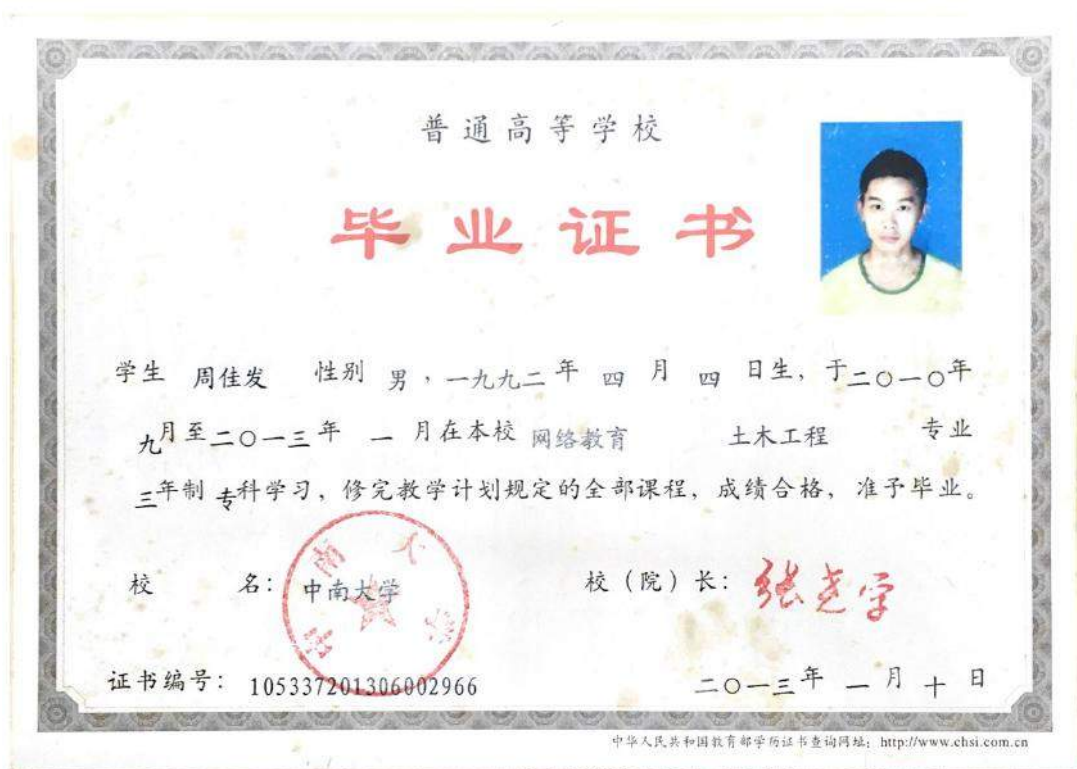 普通高等学校
毕业证书
学生 周佳发 性别 男，一九九二年 四 月 四 日生，于二○一○年
九月至二○一三年 一 月在本校 网络教育 土木工程 专业
三年制 专科学习，修完教学计划规定的全部课程，成绩合格，准予毕业。
校 名：中南大学 校（院）长：张尧学
中南大学
证书编号：105337201306002966 二○一三年 一 月 十 日
中华人民共和国教育部学历证书查询网址：http://www.chsi.com.cn